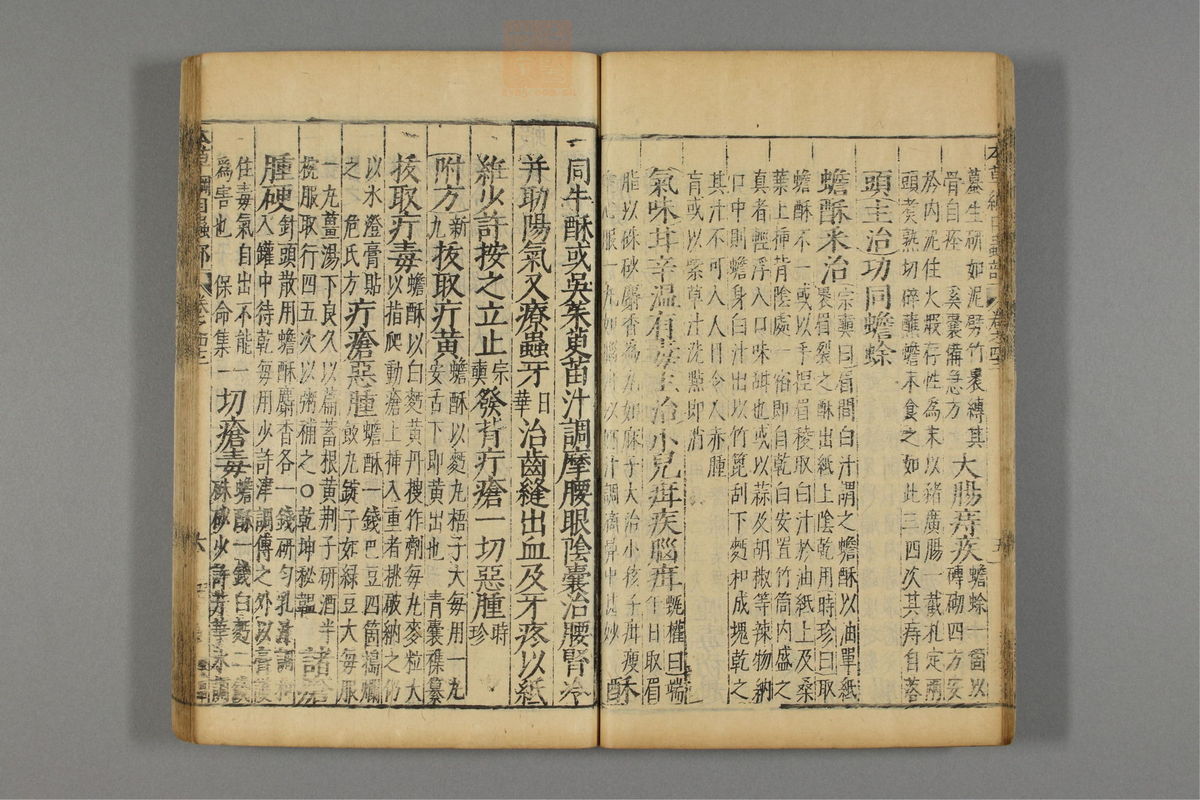 墓生研如泥劈竹裹縛其
骨自痊 奚囊備急方 大腸痔疾 蟾蜍一箇以磚砌四方安
於內泥住火煅存性爲末以豬廣腸一截扎定兩
頭煑熟切碎蘸蟾末食之如此三四次其痔自落
頭主治功同蟾蜍
蟾酥采治 宗奭曰眉間白汁謂之蟾酥以油單紙
裹眉裂之酥出紙上陰乾用時珍曰取
蟾酥不一或以手捏眉稜取白汁於油紙上及桑
葉上揷背陰處一宿卽自乾白安置竹筒內盛之
真者輕浮入口味甜也或以蒜及胡椒等辣物納
口中則蟾身白汁出以竹篦刮下麪和成塊乾之
其汁不可入人目令人赤腫
盲或以紫草汁洗點卽消
氣味甘辛溫有毒主治小兒疳疾腦疳 甄權曰端
午日取眉
脂以硃砂麝香爲丸如麻子大治小孩子疳瘦
服一丸如
酥
同牛酥或吳茱萸苗汁調摩腰眼陰囊治腰腎冷
并助陽氣又療蟲牙 日華 治齒縫出血及牙疼以紙
維少許按之立止 宗奭 發背疔瘡一切惡腫 時珍
附方 新九 拔取疔黃 蟾酥以麪丸梧子大每用一丸
安舌下卽黃出也 青囊襍纂
拔取疔毒 蟾酥以白麪黃丹搜作劑每丸麥粒大
以指爬動瘡上揷入重者挑破納之仍
以水澄膏貼
之 危氏方 疔瘡惡腫 蟾酥一錢巴豆四箇搗爛
飯丸錠子如綠豆大每服
一丸薑湯下良久以萹蓄根黃荆子研酒半
椀服取行四五次以粥補之○乾坤秘韞 諸瘡
腫硬 針頭散用蟾酥麝香各一錢研勻乳汁調和
入罐中待乾每用少許津調傅之外以膏護
住毒氣自出不能
爲害也 保命集 一切瘡毒 蟾酥一錢白麪二錢
硃砂少許井華水調